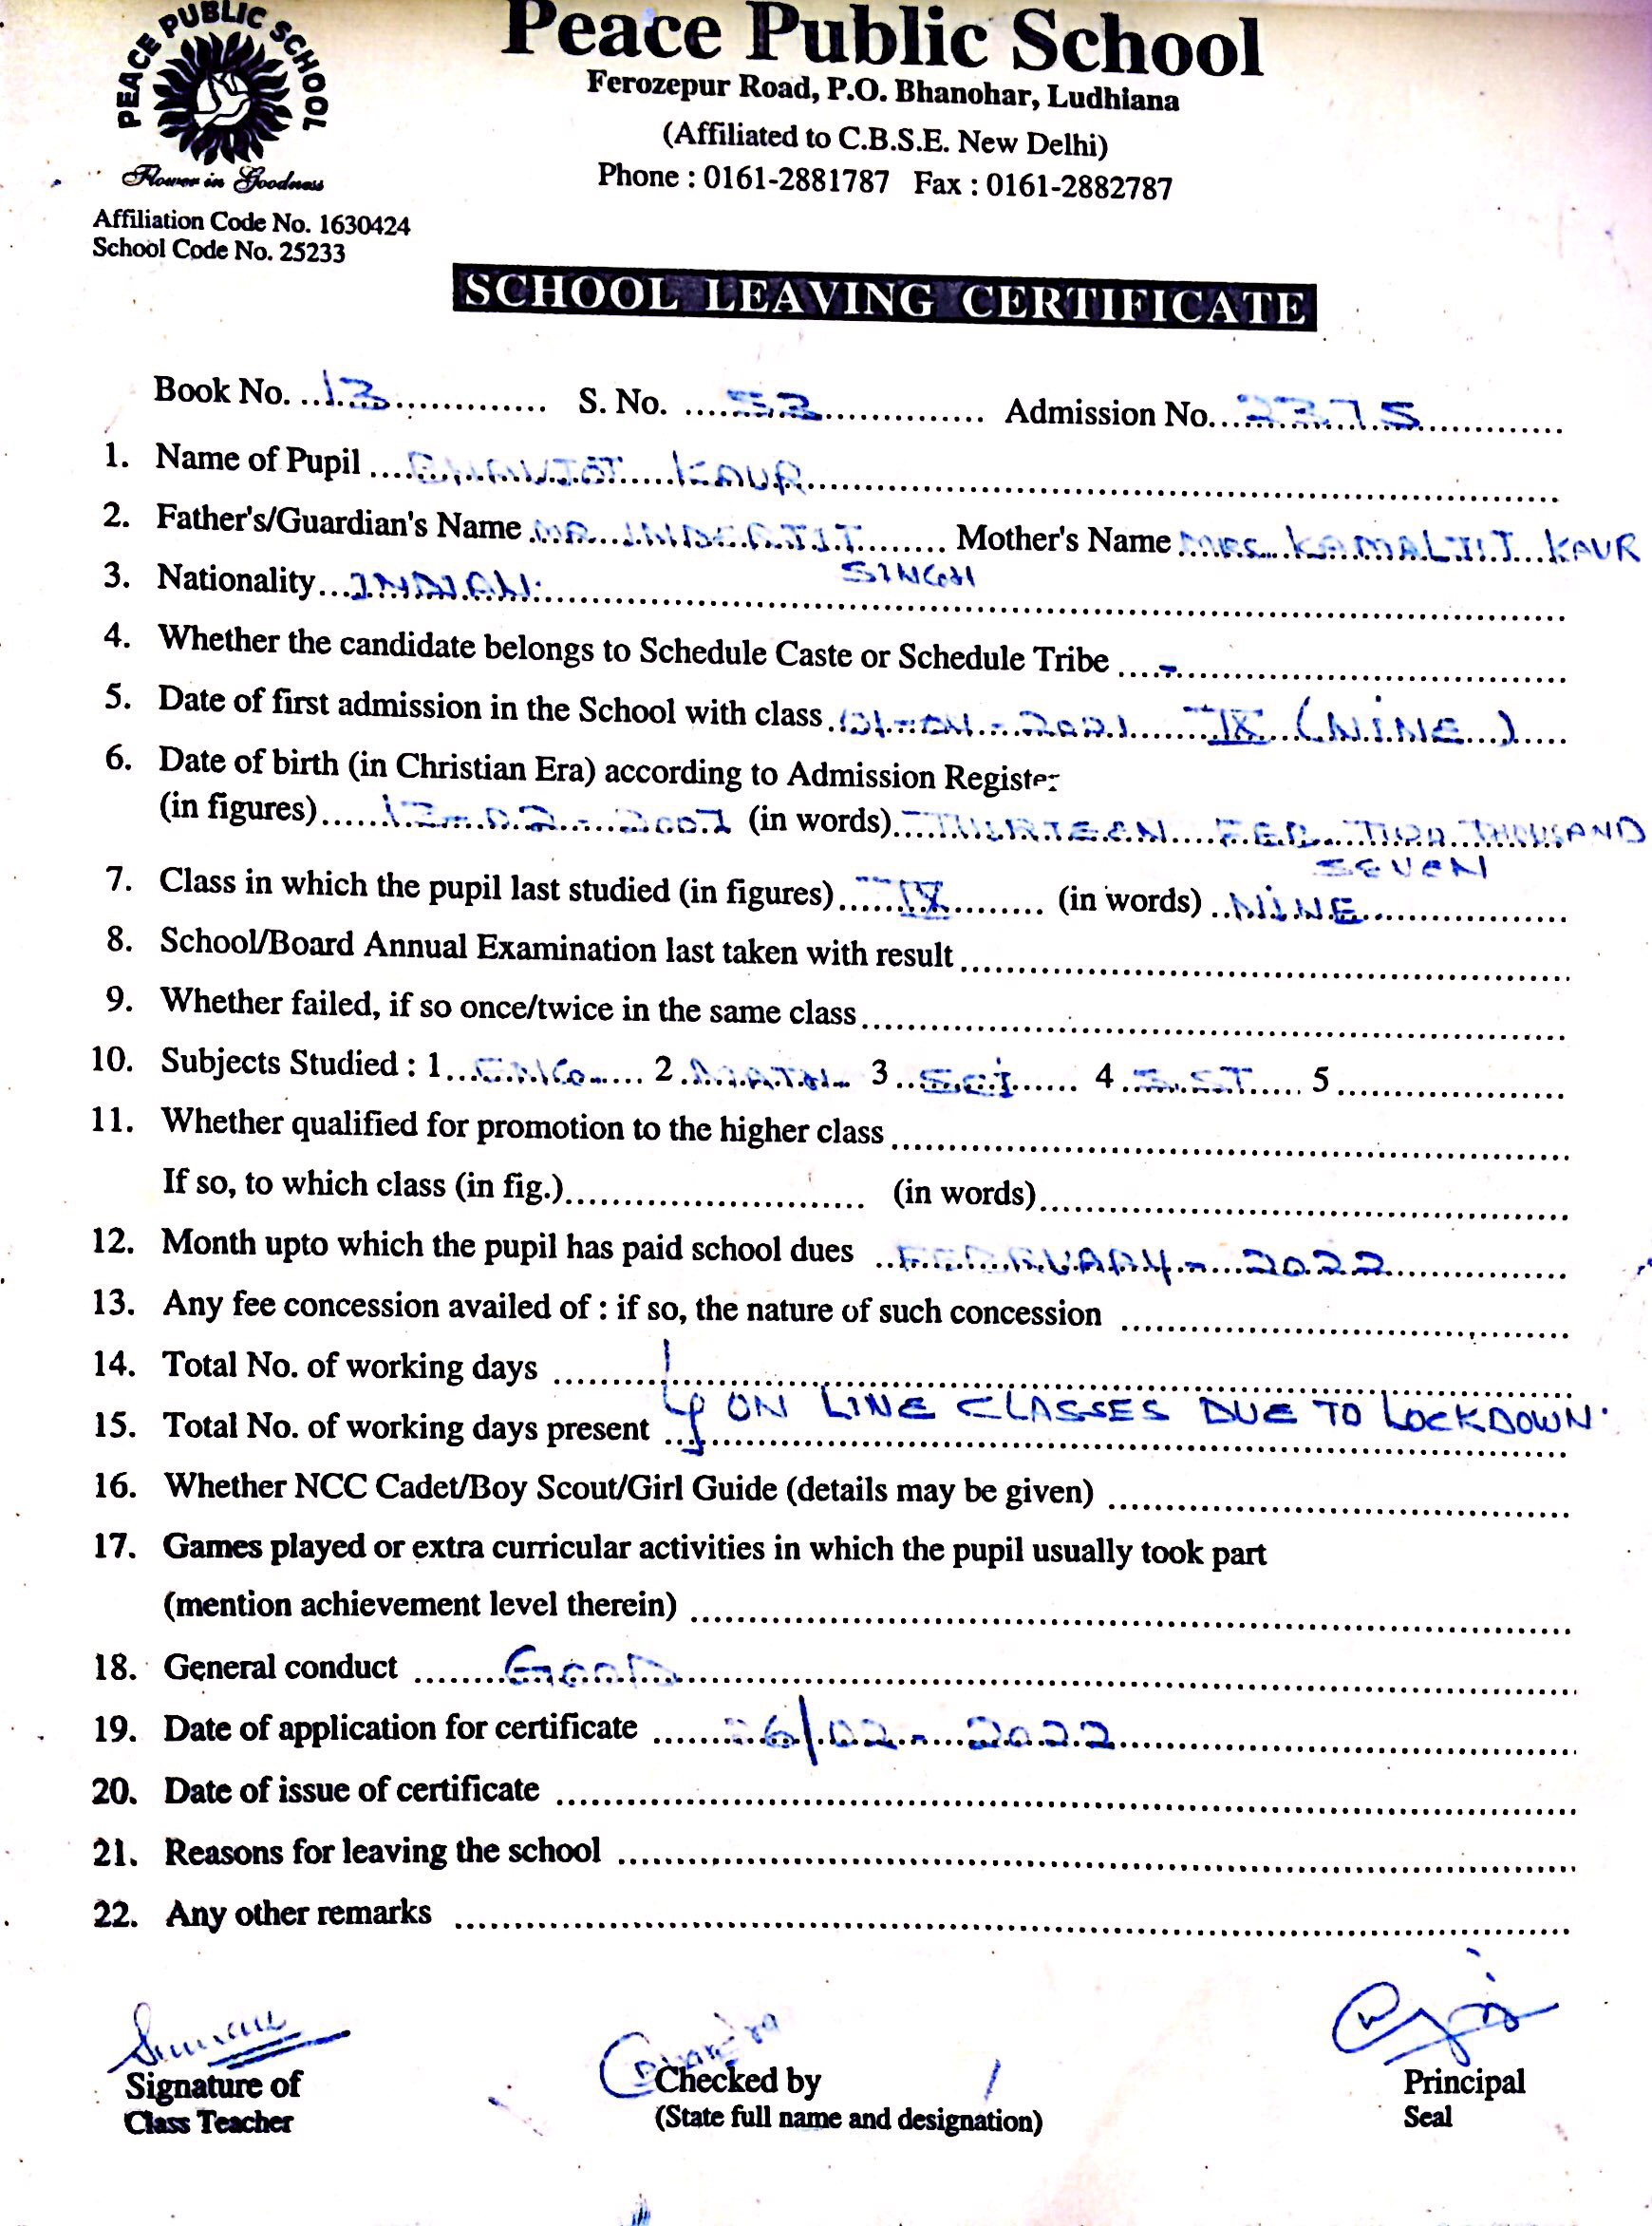 PEACE PUBLIC SCHOOL
Flower in Goodness
Affiliation Code No. 1630424
School Code No. 25233
Peace Public School
Ferozepur Road, P.O. Bhanohar, Ludhiana
(Affiliated to C.B.S.E. New Delhi)
Phone : 0161-2881787 Fax : 0161-2882787
SCHOOL LEAVING CERTIFICATE
Book No. 13 S. No. 53 Admission No. 2375
1. Name of Pupil BHAVJOT KAUR
2. Father's/Guardian's Name MR INDERJIT Mother's Name MRS KAMALJIT KAUR
SINGH
3. Nationality INDIAN
4. Whether the candidate belongs to Schedule Caste or Schedule Tribe -
5. Date of first admission in the School with class 01-04-2021 IX (NINE)
6. Date of birth (in Christian Era) according to Admission Register
(in figures) 13-02-2007 (in words) THIRTEEN FEB TWO THOUSAND
SEVEN
7. Class in which the pupil last studied (in figures) IX (in words) NINE
8. School/Board Annual Examination last taken with result
9. Whether failed, if so once/twice in the same class
10. Subjects Studied : 1 ENG 2 MATH 3 SCI 4 S.ST 5
11. Whether qualified for promotion to the higher class
If so, to which class (in fig.) (in words)
12. Month upto which the pupil has paid school dues FEBRUARY - 2022
13. Any fee concession availed of : if so, the nature of such concession
14. Total No. of working days
ON LINE CLASSES DUE TO LOCKDOWN
15. Total No. of working days present
16. Whether NCC Cadet/Boy Scout/Girl Guide (details may be given)
17. Games played or extra curricular activities in which the pupil usually took part
(mention achievement level therein)
18. General conduct GOOD
19. Date of application for certificate 26/02-2022
20. Date of issue of certificate
21. Reasons for leaving the school
22. Any other remarks
Signature of
Class Teacher
Checked by
(State full name and designation)
Principal
Seal